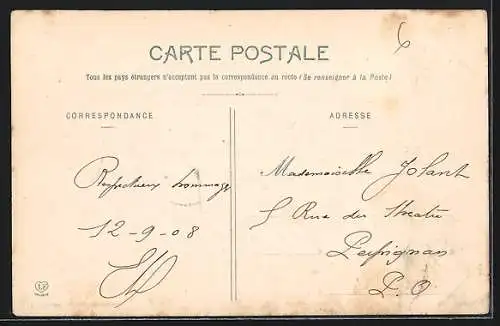 6
CARTE POSTALE
Tous les pays étrangers n'acceptent pas la correspondance au recto (Se renseigner à la Poste)
CORRESPONDANCE
ADRESSE
Respectueux hommage
12-9-08
Mademoiselle Jolant
5 Rue du Theatre
Perpignan
P. O